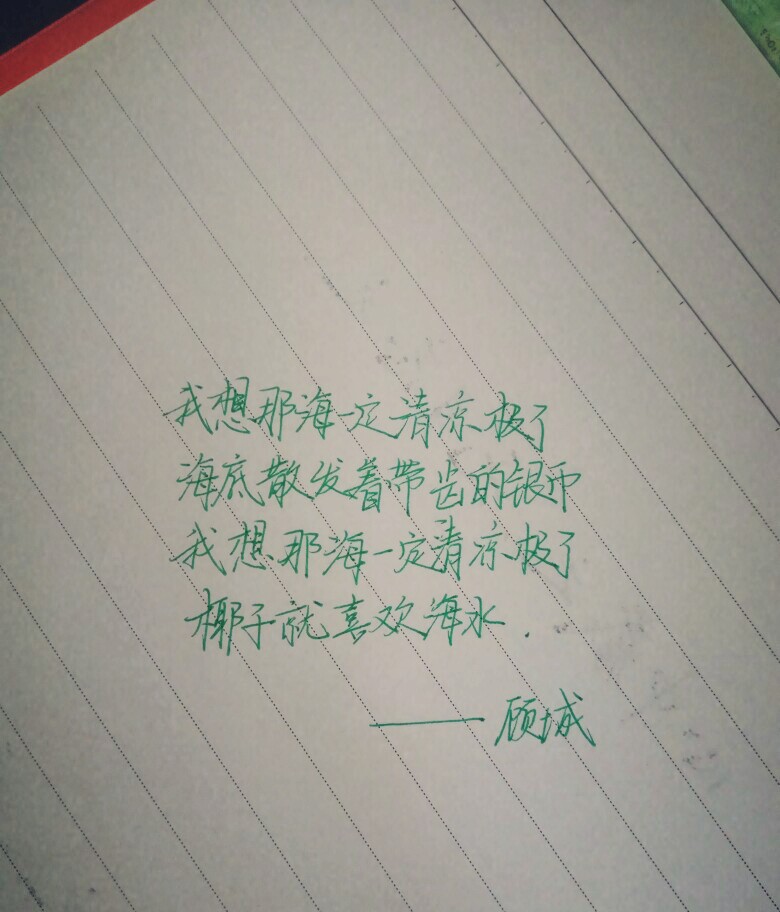 我想那海一定清凉极了
海底散发着带齿的银币
我想那海一定清凉极了
椰子就喜欢海水.
——顾城